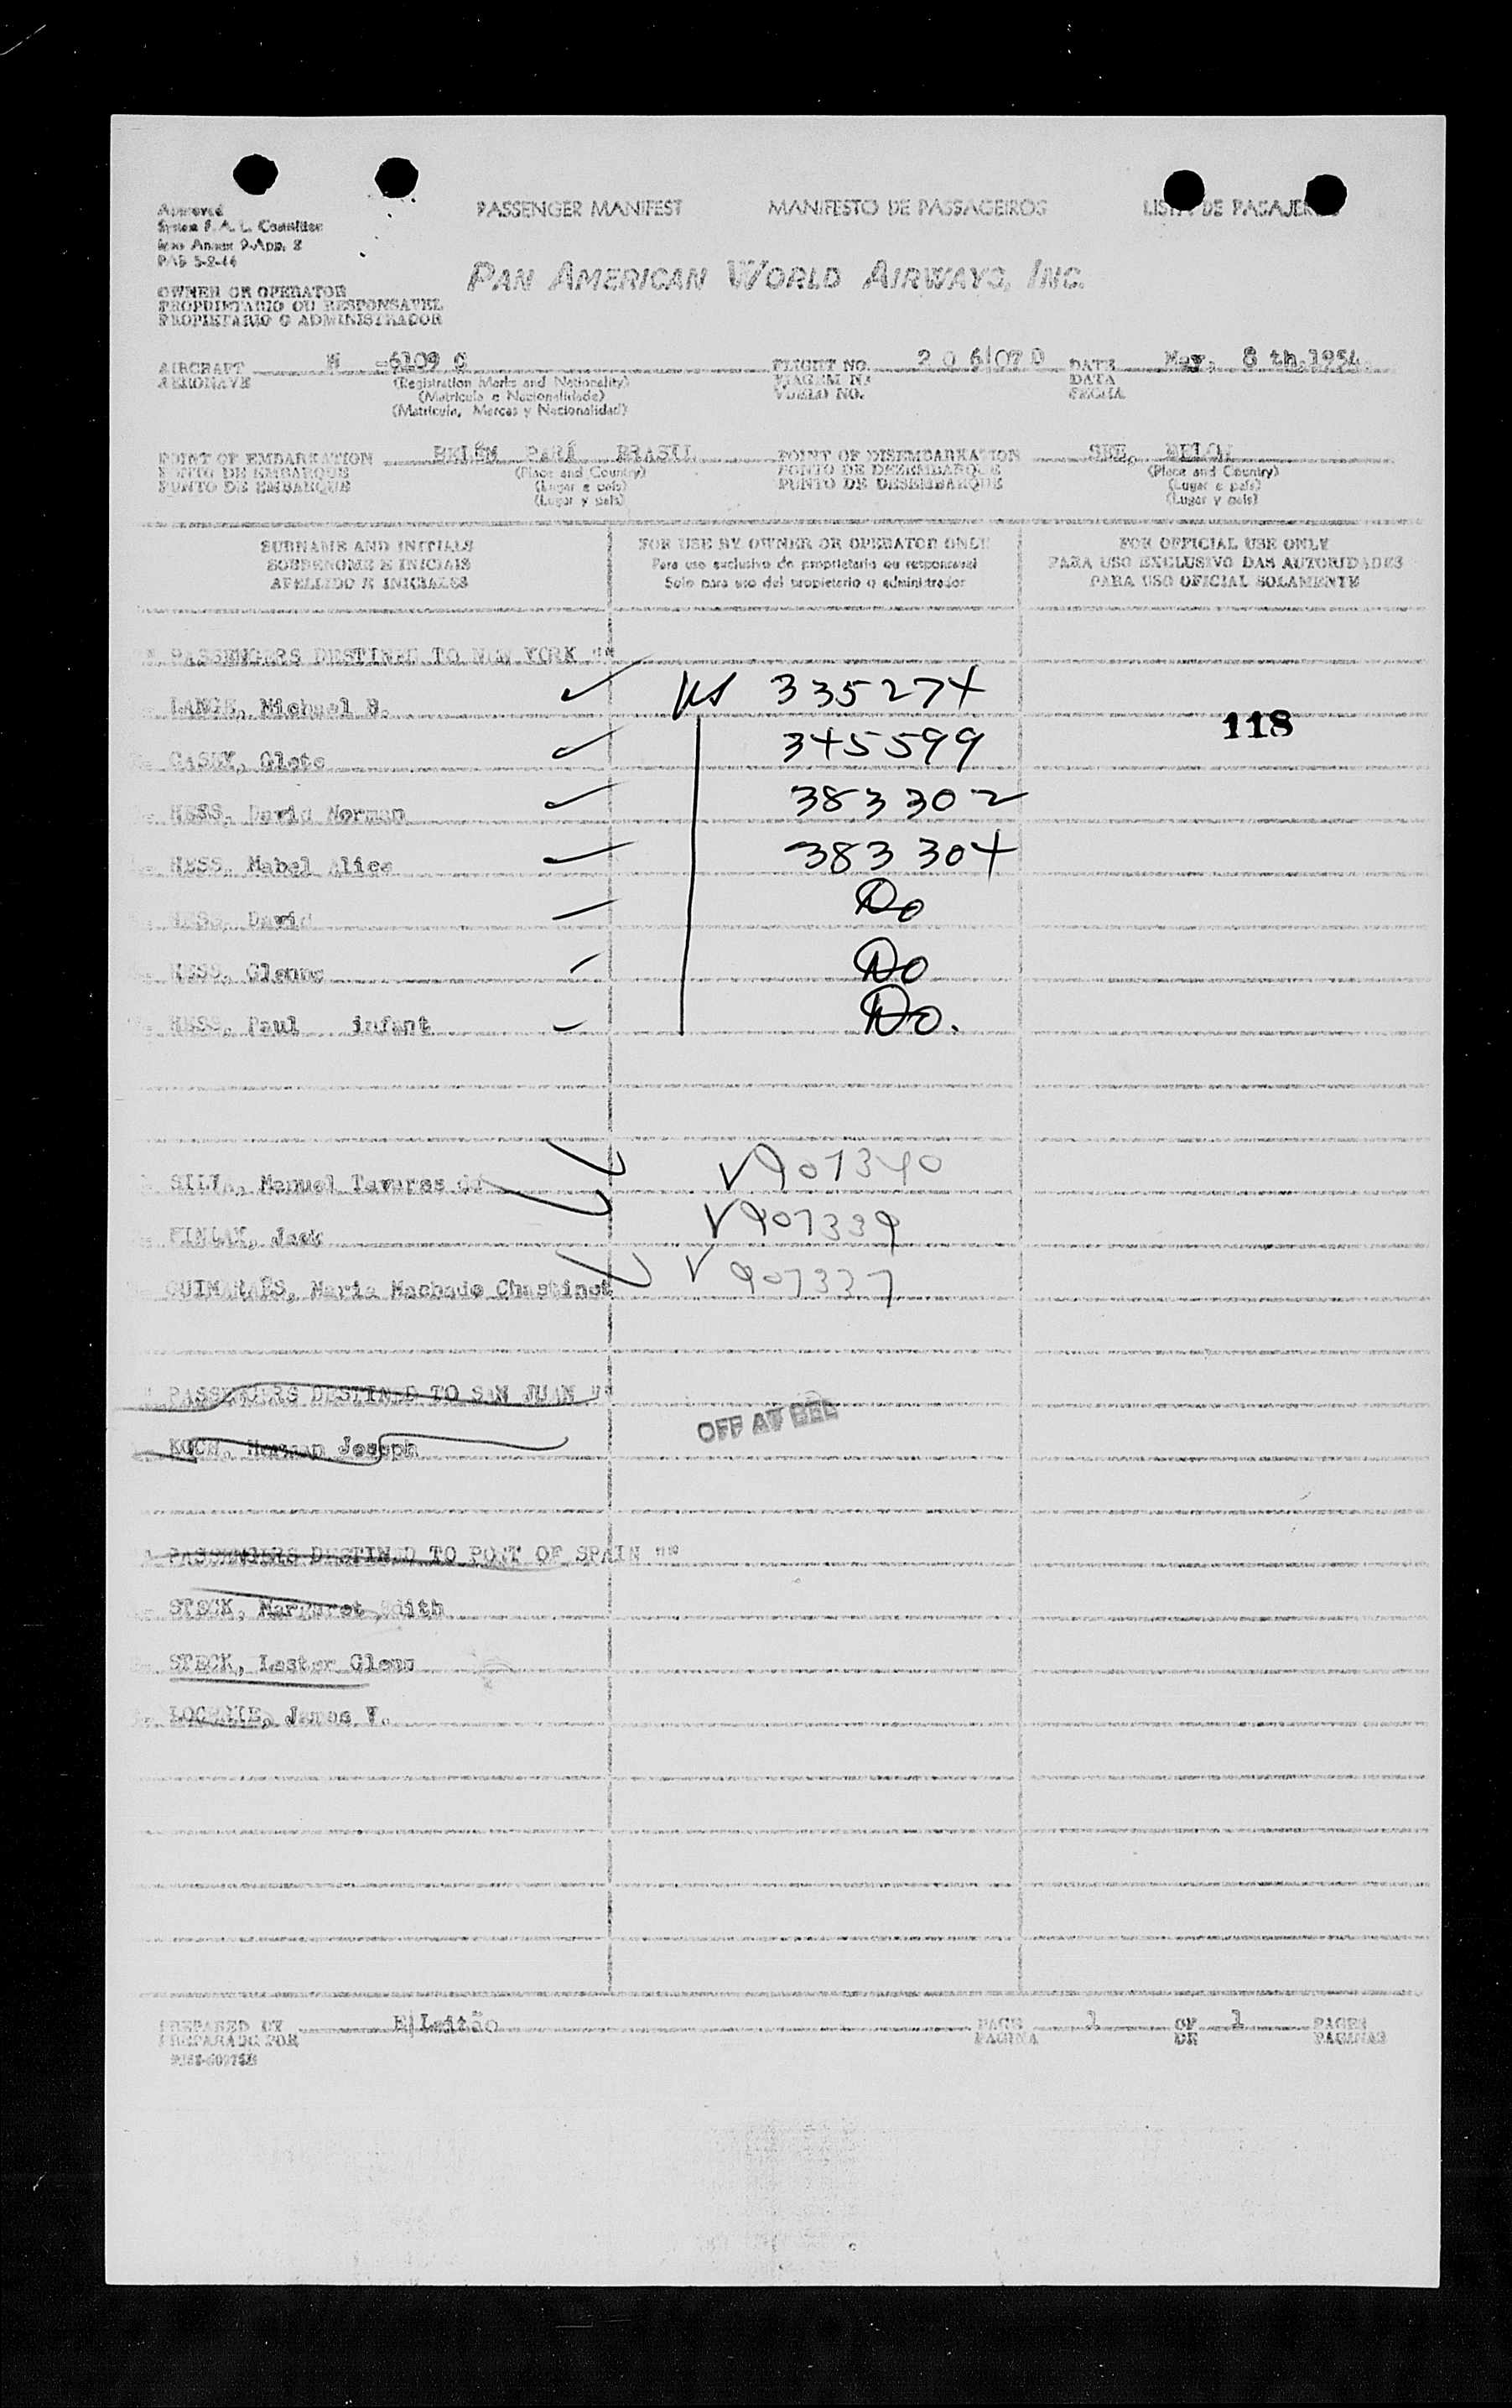 PASSENGER MANIFEST MANIFESTO DE PASSAGEIROS LISTA DE PASAJEROS
Approved
System F. A. L. Committee
Annex 9-App. 2
PAN AMERICAN WORLD AIRWAYS, INC.
OWNER OR OPERATOR
PROPRIETARIO OU RESPONSAVEL
PROPIETARIO O ADMINISTRADOR
AIRCRAFT N -6109 C FLIGHT NO. 206/070 DATE May, 8 th,1954.
AERONAVE (Registration Marks and Nationality) VIAGEM No DATA
(Matricula e Nacionalidade) VUELO NO. FECHA
(Matricula, Marcas y Nacionalidad)
POINT OF EMBARKATION BELÉM PARÁ BRASIL POINT OF DISEMBARKATION SEE, BELOW
PONTO DE EMBARQUE (Place and Country) PONTO DE DESEMBARQUE (Place and Country)
PUNTO DE EMBARQUE (Lugar e país) PUNTO DE DESEMBARQUE (Lugar e país)
(Lugar y país) (Lugar y país)
SURNAME AND INITIALS FOR USE BY OWNER OR OPERATOR ONLY FOR OFFICIAL USE ONLY
SOBRENOME E INICIAIS Para uso exclusivo do proprietario ou responsavel PARA USO EXCLUSIVO DAS AUTORIDADES
APELLIDO E INICIALES Solo para uso del propietario o administrador PARA USO OFICIAL SOLAMENTE
" PASSENGERS DESTINED TO NEW YORK "
Michael US 335274
118
CASEY, 345599
HESS, David Norman 383302
HESS, Mabel Alice 383304
HESS, David Do
HESS, Glenne Do
HESS, Paul infant Do.
SILVA, Manuel Tavares da V907340
FINLAY, Jack V907339
GUIMARAES, Maria Machado Chastinet V 907337
" PASSENGERS DESTINED TO SAN JUAN "
OFF AT BEL
KOCH, Herman Joseph
" PASSENGERS DESTINED TO PORT OF SPAIN "
STECK, Margaret Edith
STECK, Lester Glenn
James V.
PREPARED BY E/Leitão PAGE 1 OF 1 PAGES
PREPARADO POR PAGINA DE PAGINAS